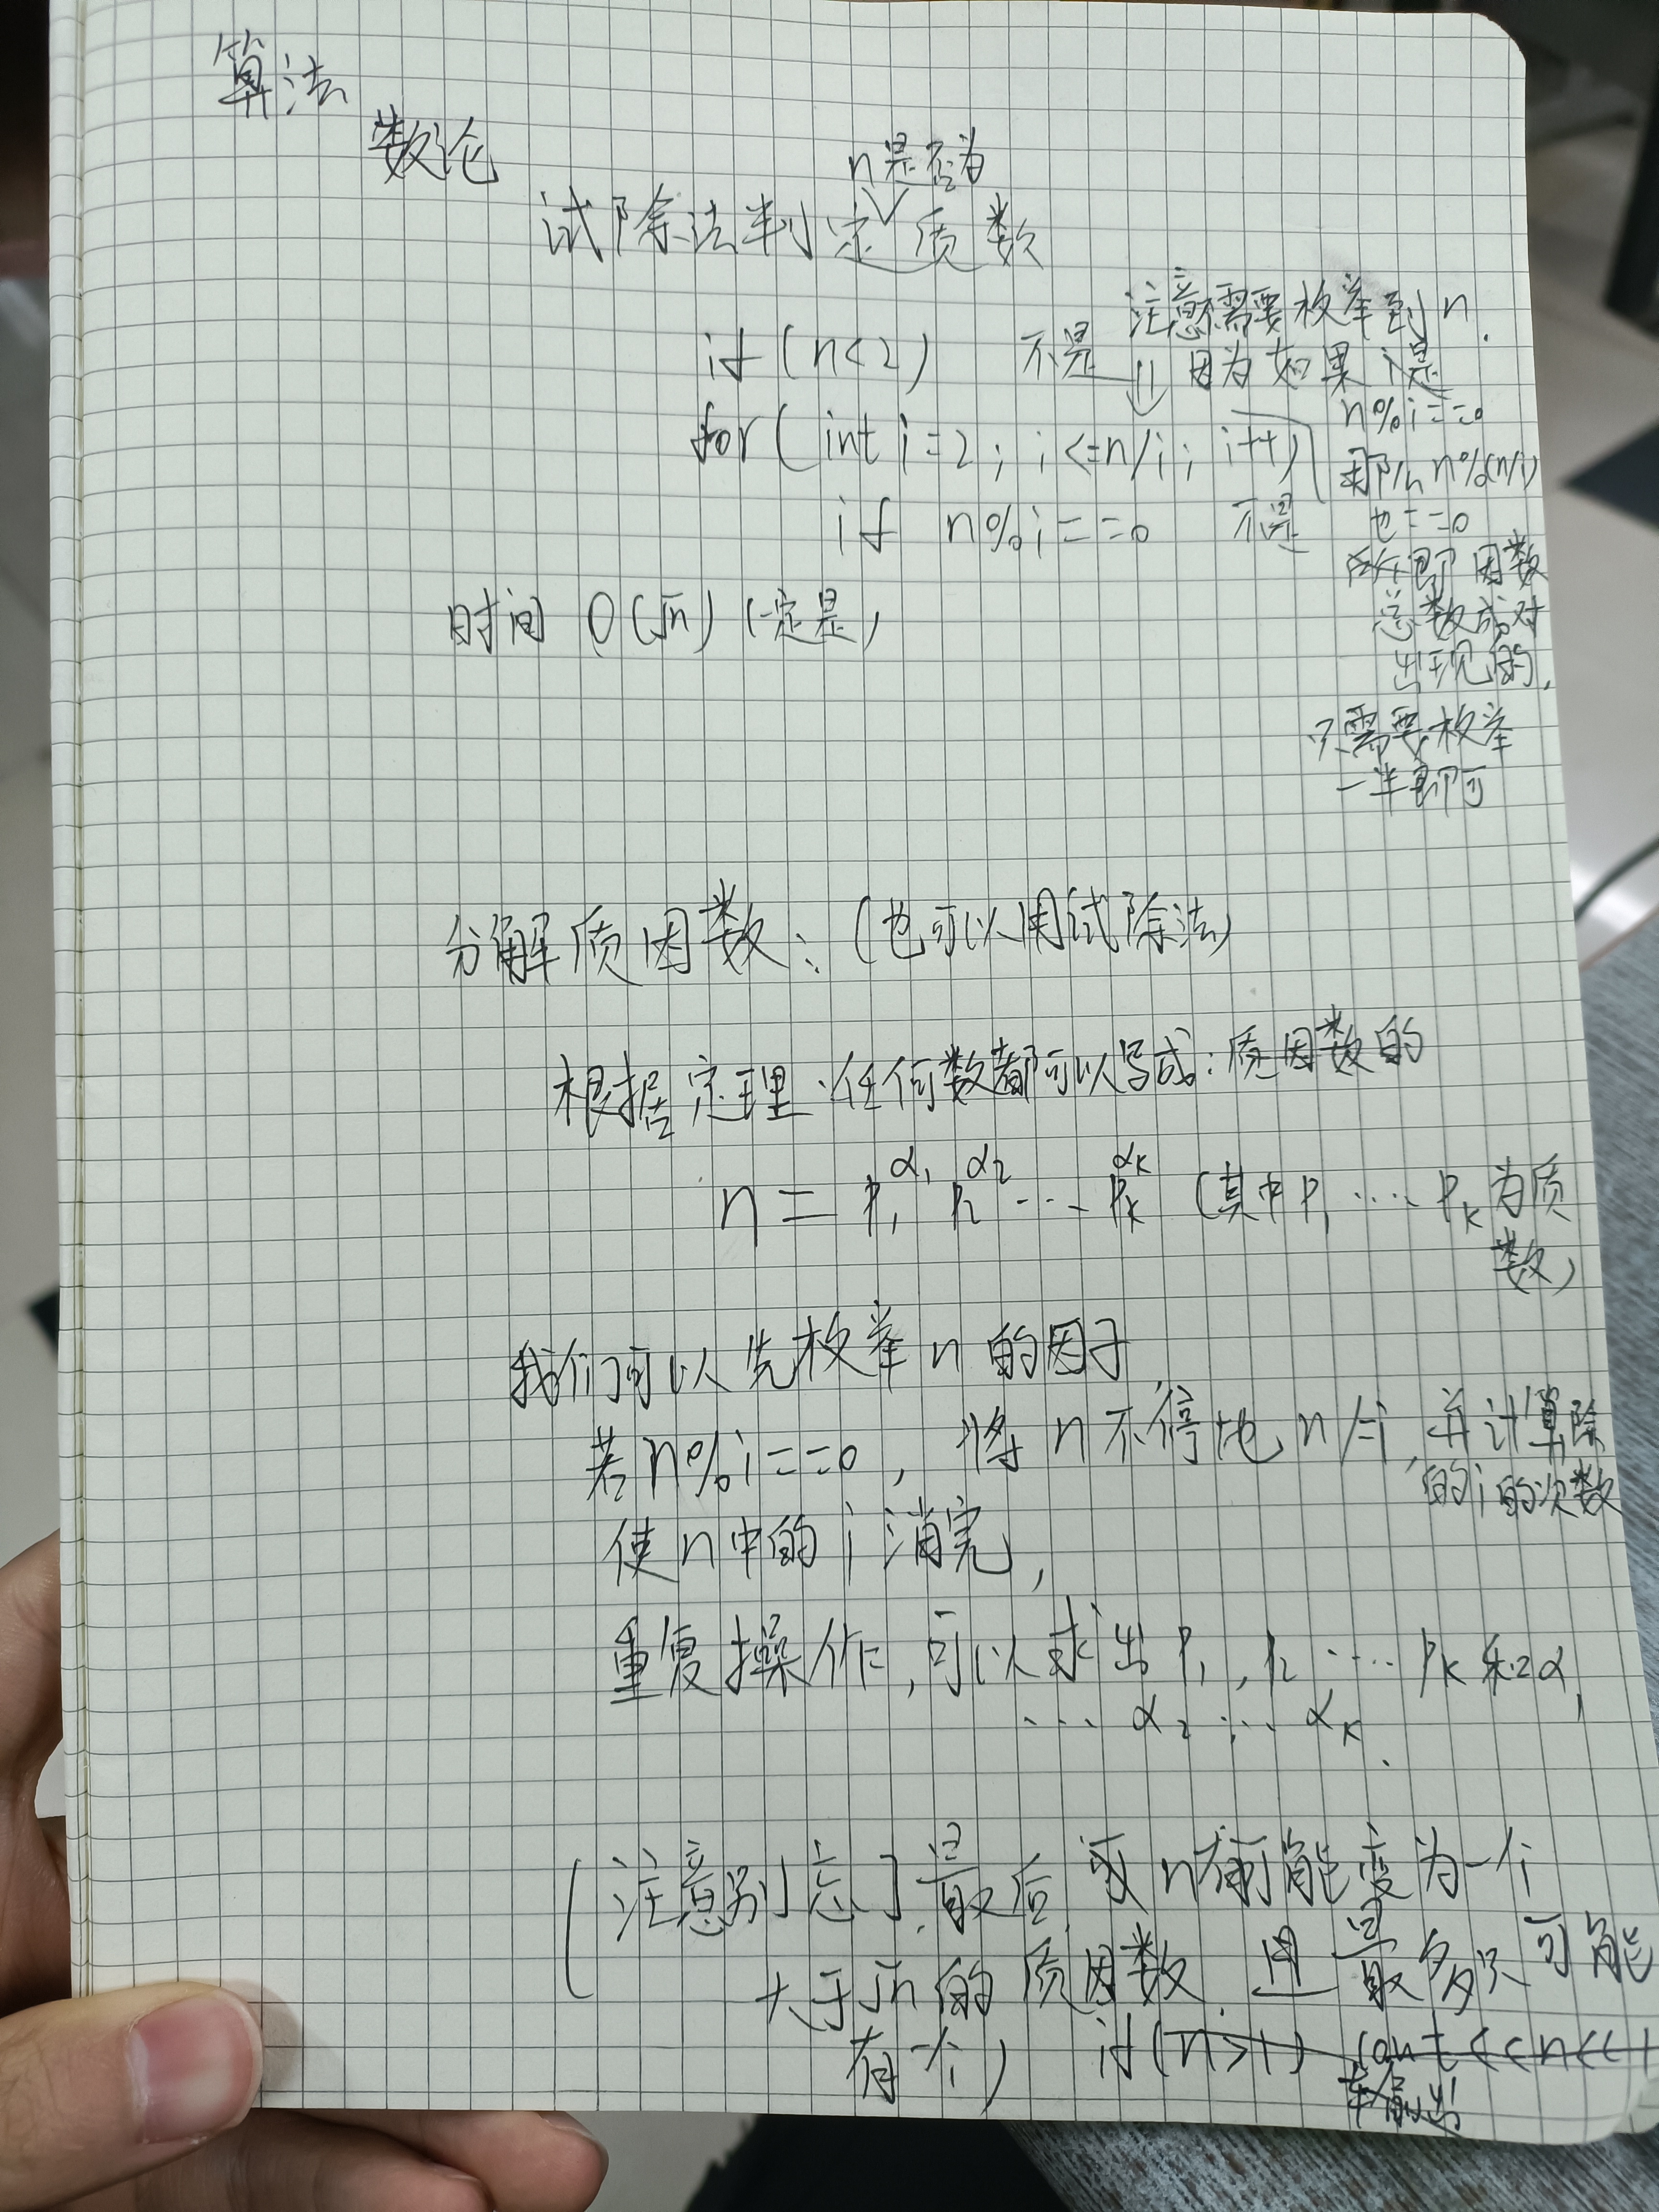 算法
数论
n是否为
试除法判定质数
if (n<2) 不是
注意不需要枚举到n.
因为如果i是
n%i==0
那么n%(n/i)
也==0
即因数
总数成对
出现的,
只需要枚举
一半即可
for(int i=2; i<=n/i; i++)
if n%i==0 不是
时间 O(√n) (一定是)
分解质因数: (也可以用试除法)
根据定理:任何数都可以写成:质因数的
n = P₁^α₁ P₂^α₂ ... Pₖ^αₖ (其中P₁ .... Pₖ为质
数)
我们可以先枚举n的因子,
若n%i==0, 将n不停地n/=i, 并计算除
的i的次数
使n中的i消完,
重复操作,可以求出P₁, P₂ .... Pₖ和α₁
... α₂ ... αₖ.
(注意别忘了,最后 n有可能变为一个
大于√n的质因数. 且最多只可能
有一个) if(n>1) cout<<n<<1
输出